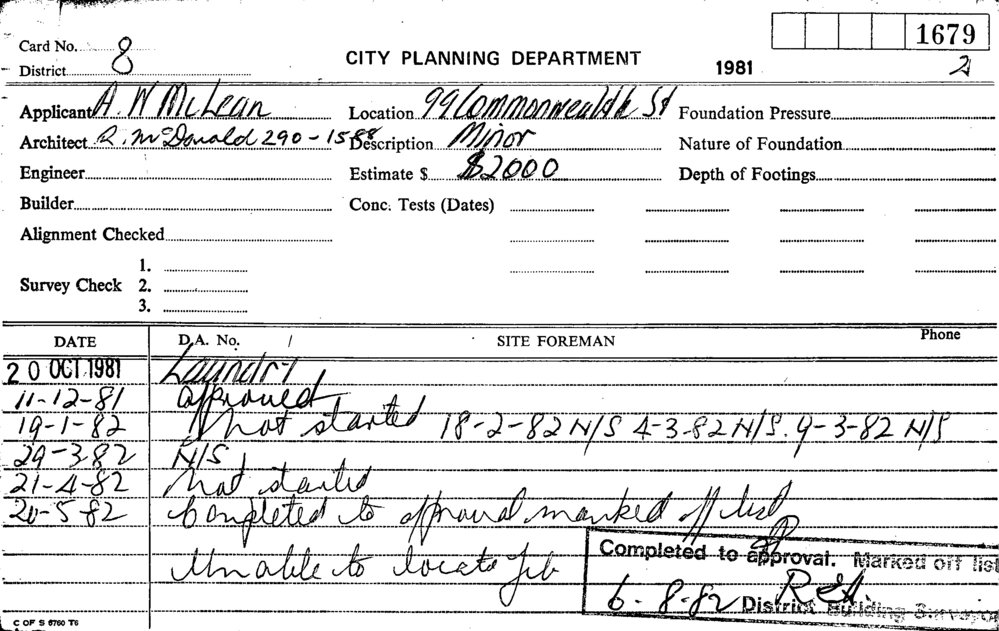 1679
Card No. 8
CITY PLANNING DEPARTMENT
1981
2
District
Applicant A. W McLean
Location 99 Commonwealth St
Foundation Pressure
Architect R. McDonald 290-1588
Description Minor
Nature of Foundation
Engineer
Estimate $ $2000
Depth of Footings
Builder
Conc. Tests (Dates)
Alignment Checked
1.
Survey Check 2.
3.
DATE D.A. No. / SITE FOREMAN Phone
20 OCT 1981 Laundry
11-12-81 approved
19-1-82 Not started 18-2-82 N/S 4-3-82 N/S. 9-3-82 N/S
29-3-82 N/S
21-4-82 Not started
20-5-82 Completed to approval marked off list
Unable to locate job
Completed to approval. Marked off list
6-8-82 District Building Surveyor
C OF S 6760 T6